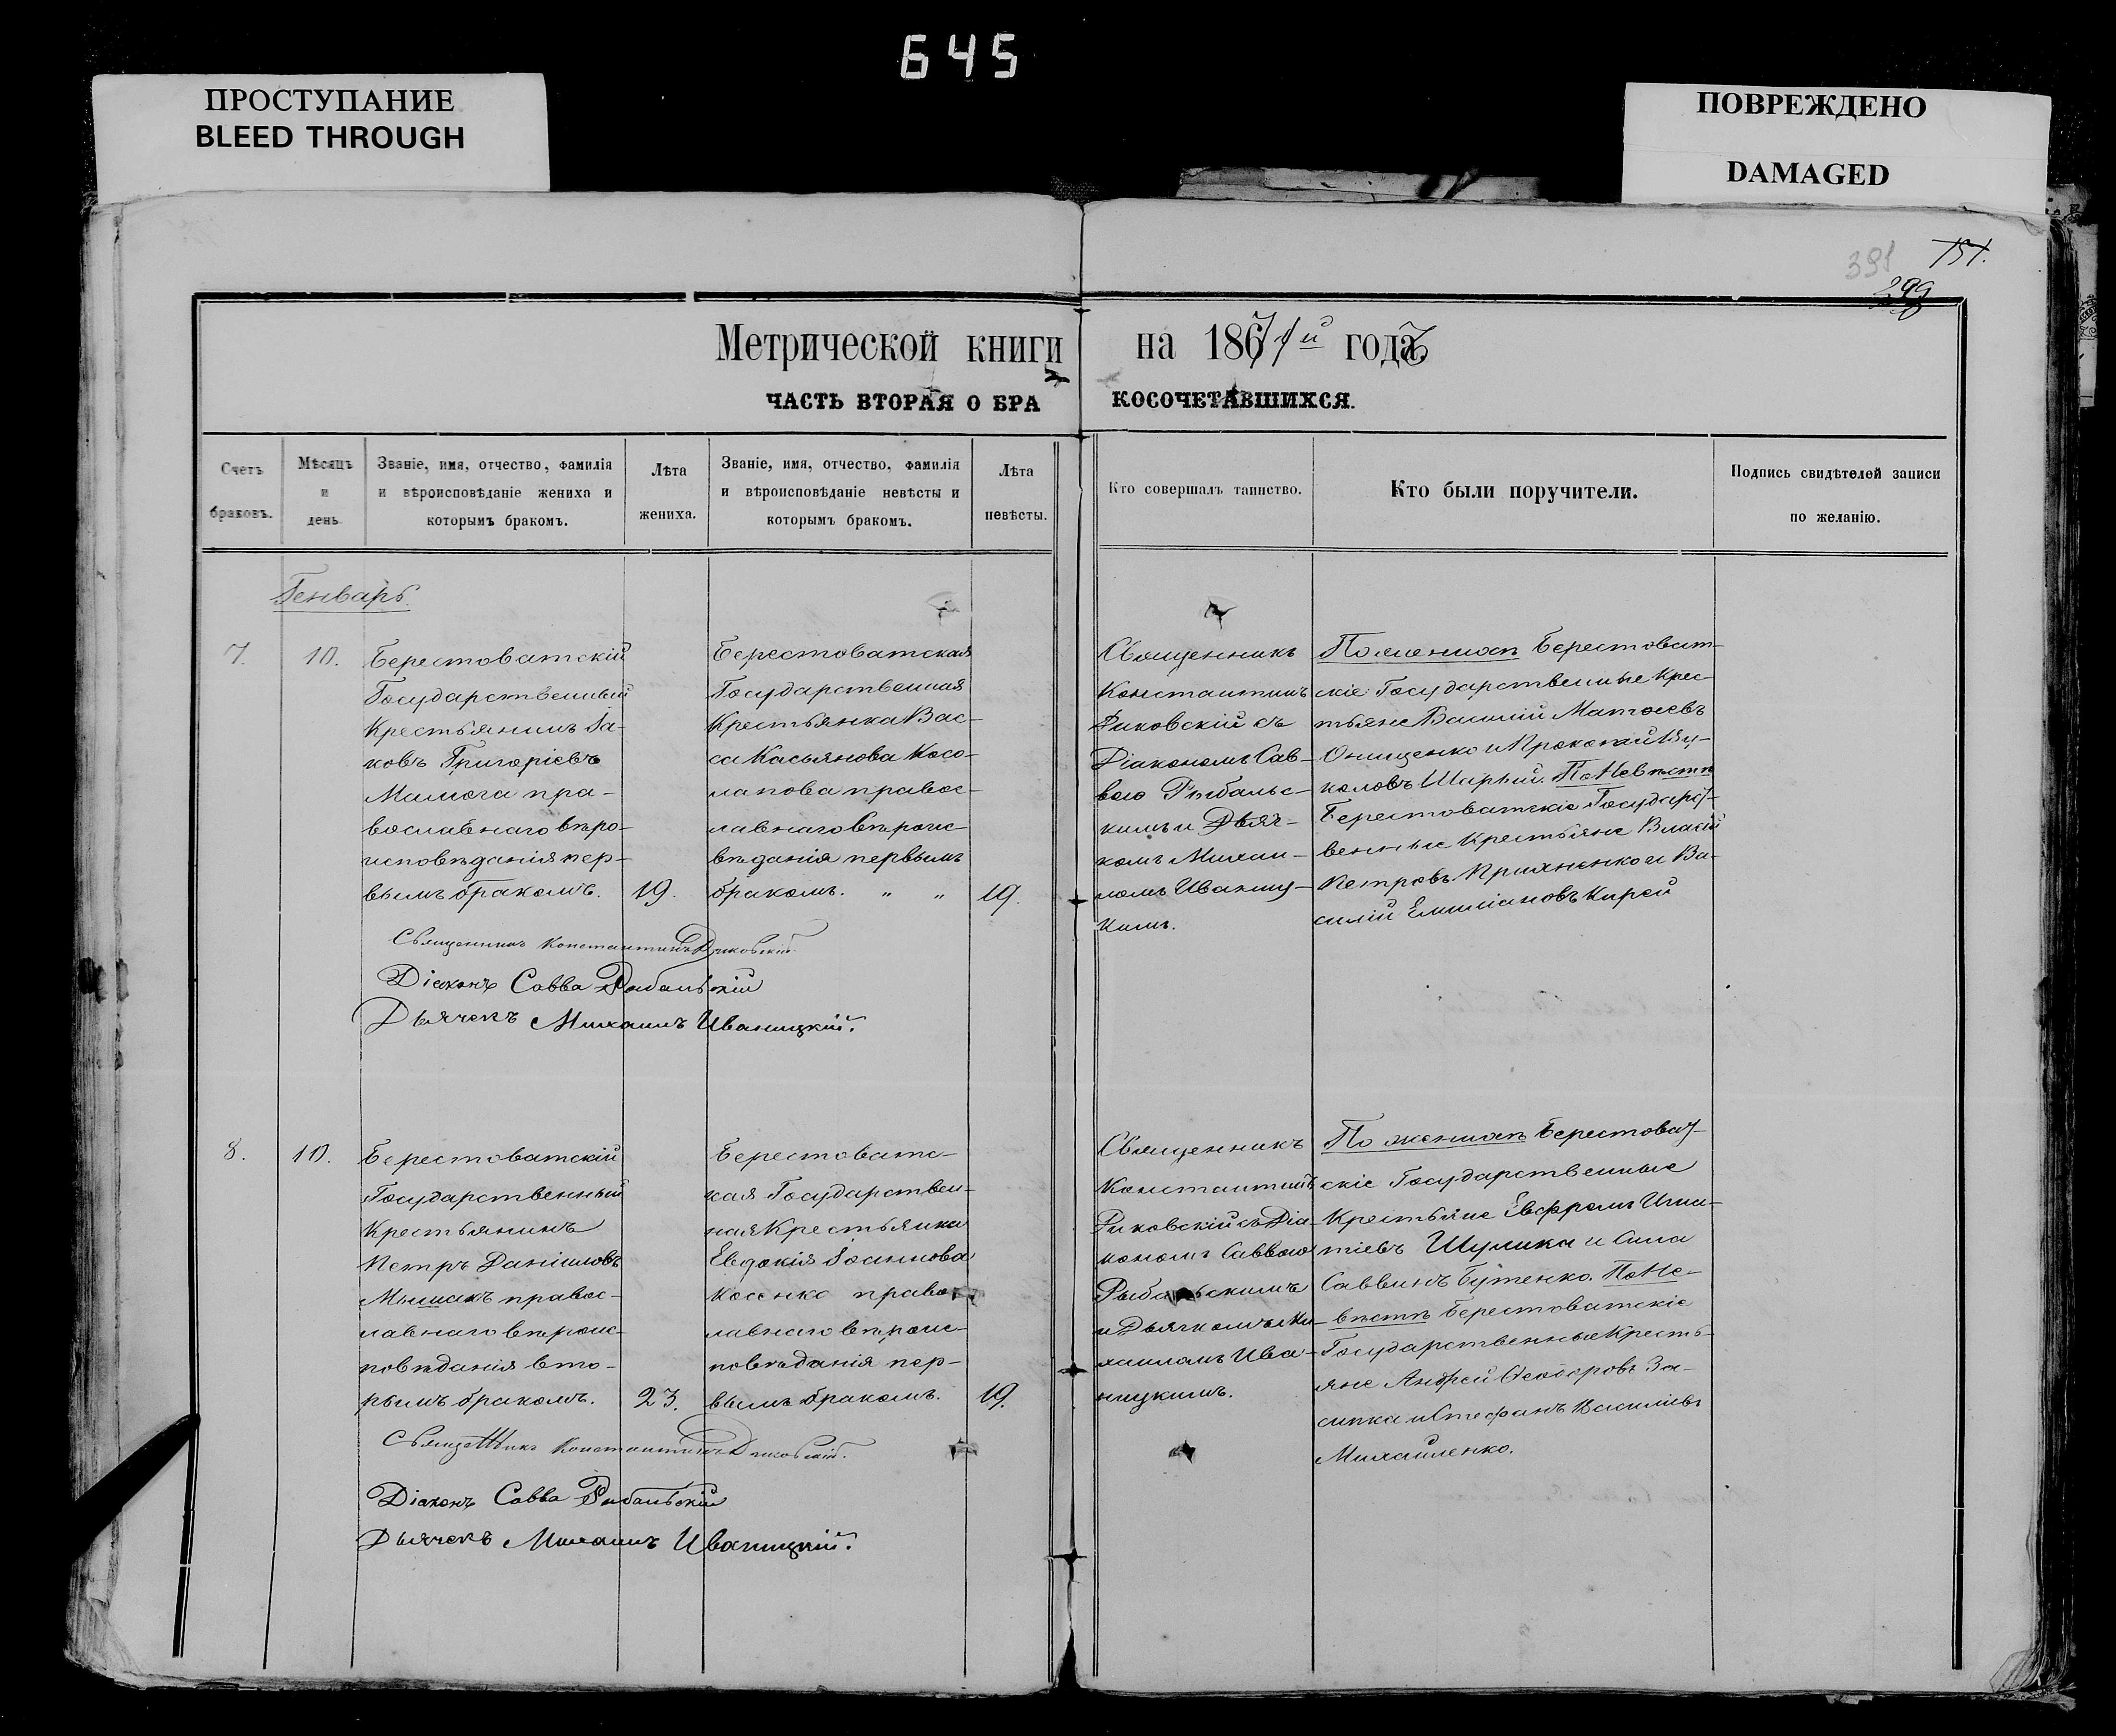 645
ПРОСТУПАНИЕ
BLEED THROUGH
ПОВРЕЖДЕНО
DAMAGED
391
151.
299
Метрической книги на 1871й годъ
ЧАСТЬ ВТОРАЯ О БРАКОСОЧЕТАВШИХСЯ.
Счетъ
браковъ.
Мѣсяцъ
и
день
Званіе, имя, отчество, фамилія
и вѣроисповѣданіе жениха и
которымъ бракомъ.
Лѣта
жениха.
Званіе, имя, отчество, фамилія
и вѣроисповѣданіе невѣсты и
которымъ бракомъ.
Лѣта
невѣсты.
Кто совершалъ таинство.
Кто были поручители.
Подпись свидѣтелей записи
по желанію.
Генварь.
7.
10.
Берестоватскій
Государственный
Крестьянинъ Іа-
ковъ Григоріевъ
пра-
вославнаго вѣро-
исповѣданія пер-
вымъ бракомъ.
19.
Берестоватская
Государственная
Крестьянка Вас-
са Касьянова Косо-
лапова правос-
лавнаго вѣроис-
вѣданія первымъ
бракомъ. „ „
19.
Священникъ
Константинъ
съ
Діакономъ Сав-
вою Рыбальс-
кимъ и Дьяч-
комъ Михаи-
ломъ Иваниц-
кимъ.
По женихѣ Берестоват-
скіе Государственные Крес-
тьяне Василій Матѳеевъ
Онищенко и Прокопій
Шарый. По Невѣстѣ
Берестоватскіе Государст-
венные Крестьяне Власій
Петровъ и Ва-
силій Емиліановъ Кирей
Священникъ Константинъ
Діаконъ Савва Рыбальскій
Дьячекъ Михаилъ Иваницкій.
8.
10.
Берестоватскій
Государственный
Крестьянинъ
Петръ Даніиловъ
Мышакъ правос-
лавнаго вѣроис-
повѣданія вто-
рымъ бракомъ.
23.
Берестоватс-
кая Государствен-
ная Крестьянка
Евдокія Іоаннова
Косенко правос-
лавнаго вѣроис-
повѣданія пер-
вымъ бракомъ.
19.
Священникъ
Константинъ
съ Діа-
кономъ Саввою
Рыбальскимъ
и Дьячкомъ Ми-
хаиломъ Ива-
ницкимъ.
По женихѣ Берестоват-
скіе Государственные
Крестьяне Евфремъ Игна-
тіевъ Шулика и Сила
Саввинъ Бутенко. По Не-
вѣстѣ Берестоватскіе
Государственные Кресть-
яне Андрей Ѳеодоровъ За-
сипка и Стефанъ Василіевъ
Михайленко.
Священникъ Константинъ
Діаконъ Савва Рыбальскій
Дьячекъ Михаилъ Иваницкій.